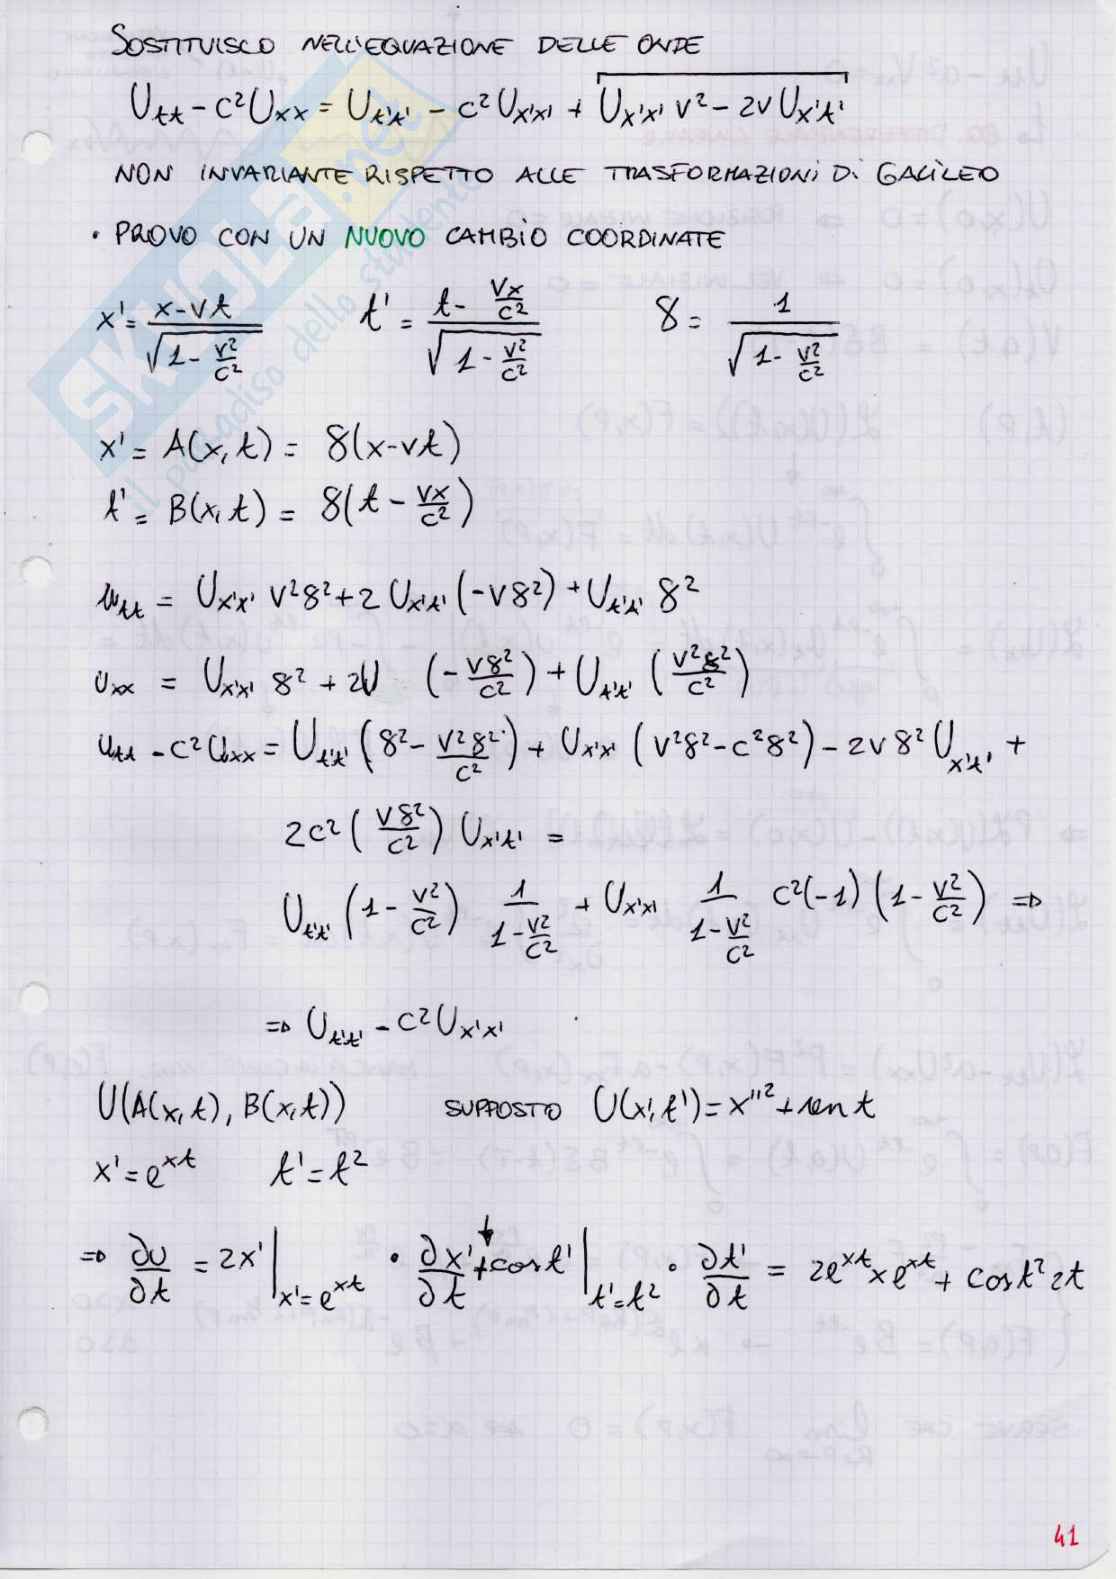 SOSTITUISCO NELL'EQUAZIONE DELLE ONDE
U_tt - c²U_xx = U_t't' - c²U_x'x' + U_x'x' v² - 2v U_x't'
NON INVARIANTE RISPETTO ALLE TRASFORMAZIONI DI GALILEO
• PROVO CON UN NUOVO CAMBIO COORDINATE
x' = (x - vt) / √(1 - v²/c²) t' = (t - vx/c²) / √(1 - v²/c²) γ = 1 / √(1 - v²/c²)
x' = A(x,t) = γ(x - vt)
t' = B(x,t) = γ(t - vx/c²)
u_tt = U_x'x' v²γ² + 2 U_x't' (-vγ²) + U_t't' γ²
u_xx = U_x'x' γ² + 2U (-vγ²/c²) + U_t't' (v²γ²/c²)
u_tt - c²U_xx = U_t't' (γ² - v²γ²/c²) + U_x'x' (v²γ² - c²γ²) - 2vγ² U_x't' +
2c² (vγ²/c²) U_x't' =
U_t't' (1 - v²/c²) 1/(1 - v²/c²) + U_x'x' 1/(1 - v²/c²) c²(-1) (1 - v²/c²) ⇒
⇒ U_t't' - c²U_x'x'
U(A(x,t), B(x,t)) SUPPOSTO U(x',t') = x''² + sen t
x' = e^xt t' = t²
⇒ ∂U/∂t = 2x' |_x'=e^xt • ∂x'/∂t + cos t' |_t'=t² • ∂t'/∂t = 2e^xt x e^xt + cos t² 2t
41
SKUOLA.net
il paradiso dello studente